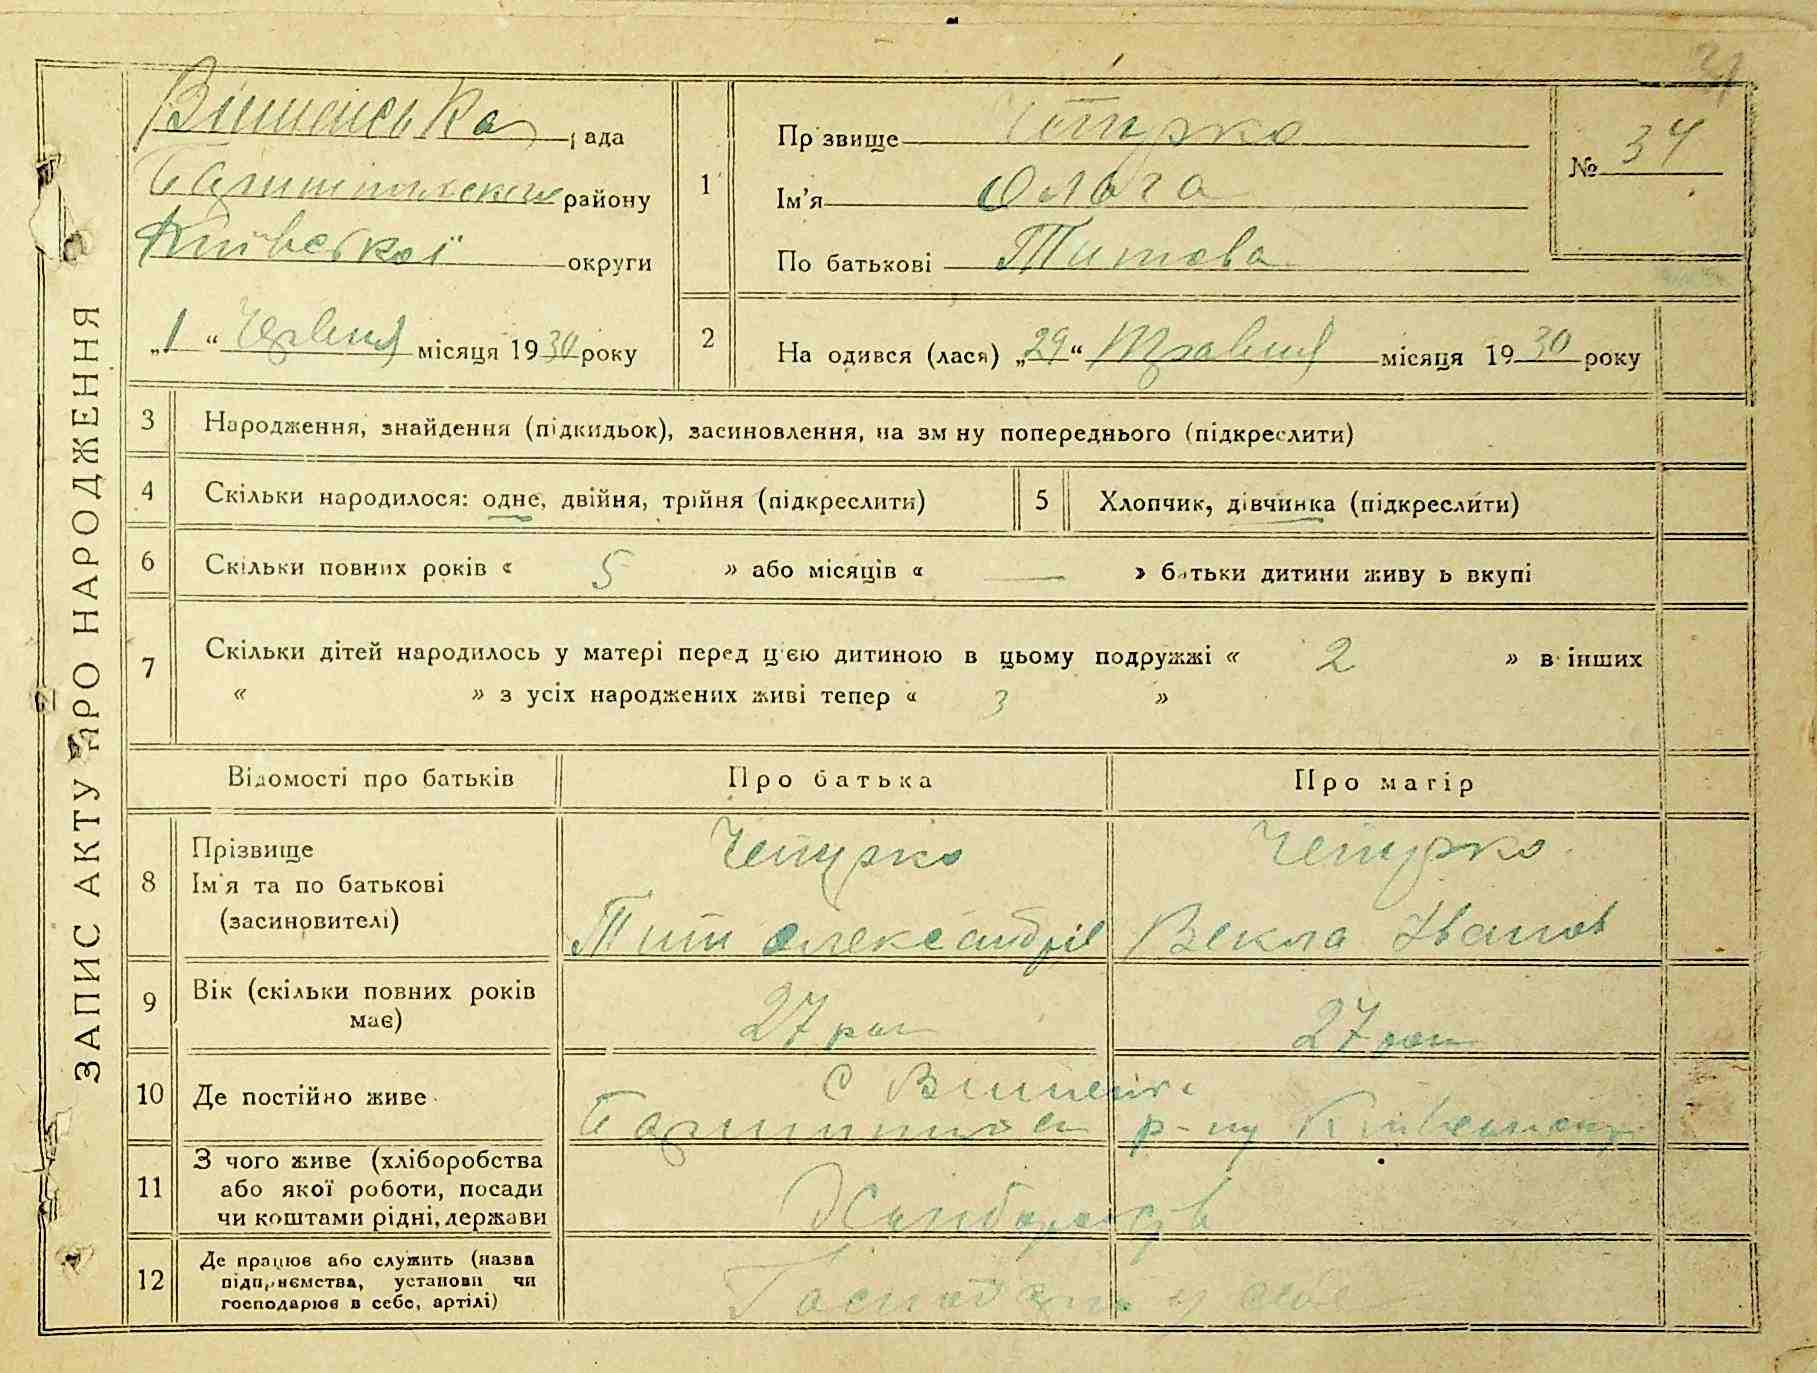 ЗАПИС АКТУ ПРО НАРОДЖЕННЯ
31
Вишеньська рада
Баришпільськ району
Київської округи
„1“ Червня місяця 1930 року
1
Прізвище Чепурко
Ім'я Ольга
По батькові Титова
№ 34
2
На одився (лася) „29“ Травня місяця 1930 року
3 Народження, знайдення (підкидьок), засиновлення, на зм ну попереднього (підкреслити)
4 Скільки народилося: одне, двійня, трійня (підкреслити)
5 Хлопчик, дівчинка (підкреслити)
6 Скільки повних років « 5 » або місяців « — » батьки дитини живу ь вкупі
7 Скільки дітей народилось у матері перед цією дитиною в цьому подружжі « 2 » в інших
« » з усіх народжених живі тепер « 3 »
Відомості про батьків
Про батька
Про матір
8 Прізвище
Ім'я та по батькові
(засиновителі)
Чепурко
Тит Олександрів
Чепурко
Векла Іванов
9 Вік (скільки повних років
має)
27 рок
27 рок
10 Де постійно живе
С Вишеньк
Баришпольск р-ну Київськ
11 З чого живе (хліборобства
або якої роботи, посади
чи коштами рідні, держави
Хліборобств
12 Де працює або служить (назва
підприємства, установи чи
господарює в себе, артілі)
Господарт у себе